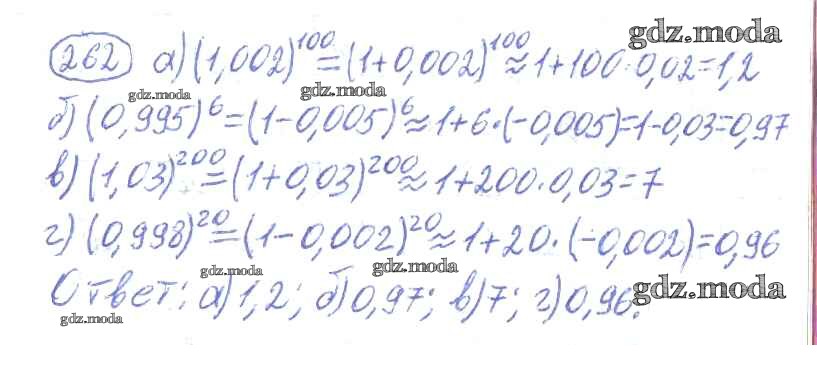 gdz.moda
262 а) (1,002)^100 = (1+0,002)^100 ≈ 1+100·0,02=1,2
gdz.moda gdz.moda
б) (0,995)^6 = (1-0,005)^6 ≈ 1+6·(-0,005)=1-0,03=0,97
в) (1,03)^200 = (1+0,03)^200 ≈ 1+200·0,03=7
г) (0,998)^20 = (1-0,002)^20 ≈ 1+20·(-0,002)=0,96
gdz.moda gdz.moda
Ответ: а) 1,2; б) 0,97; в) 7; г) 0,96.
gdz.moda
gdz.moda